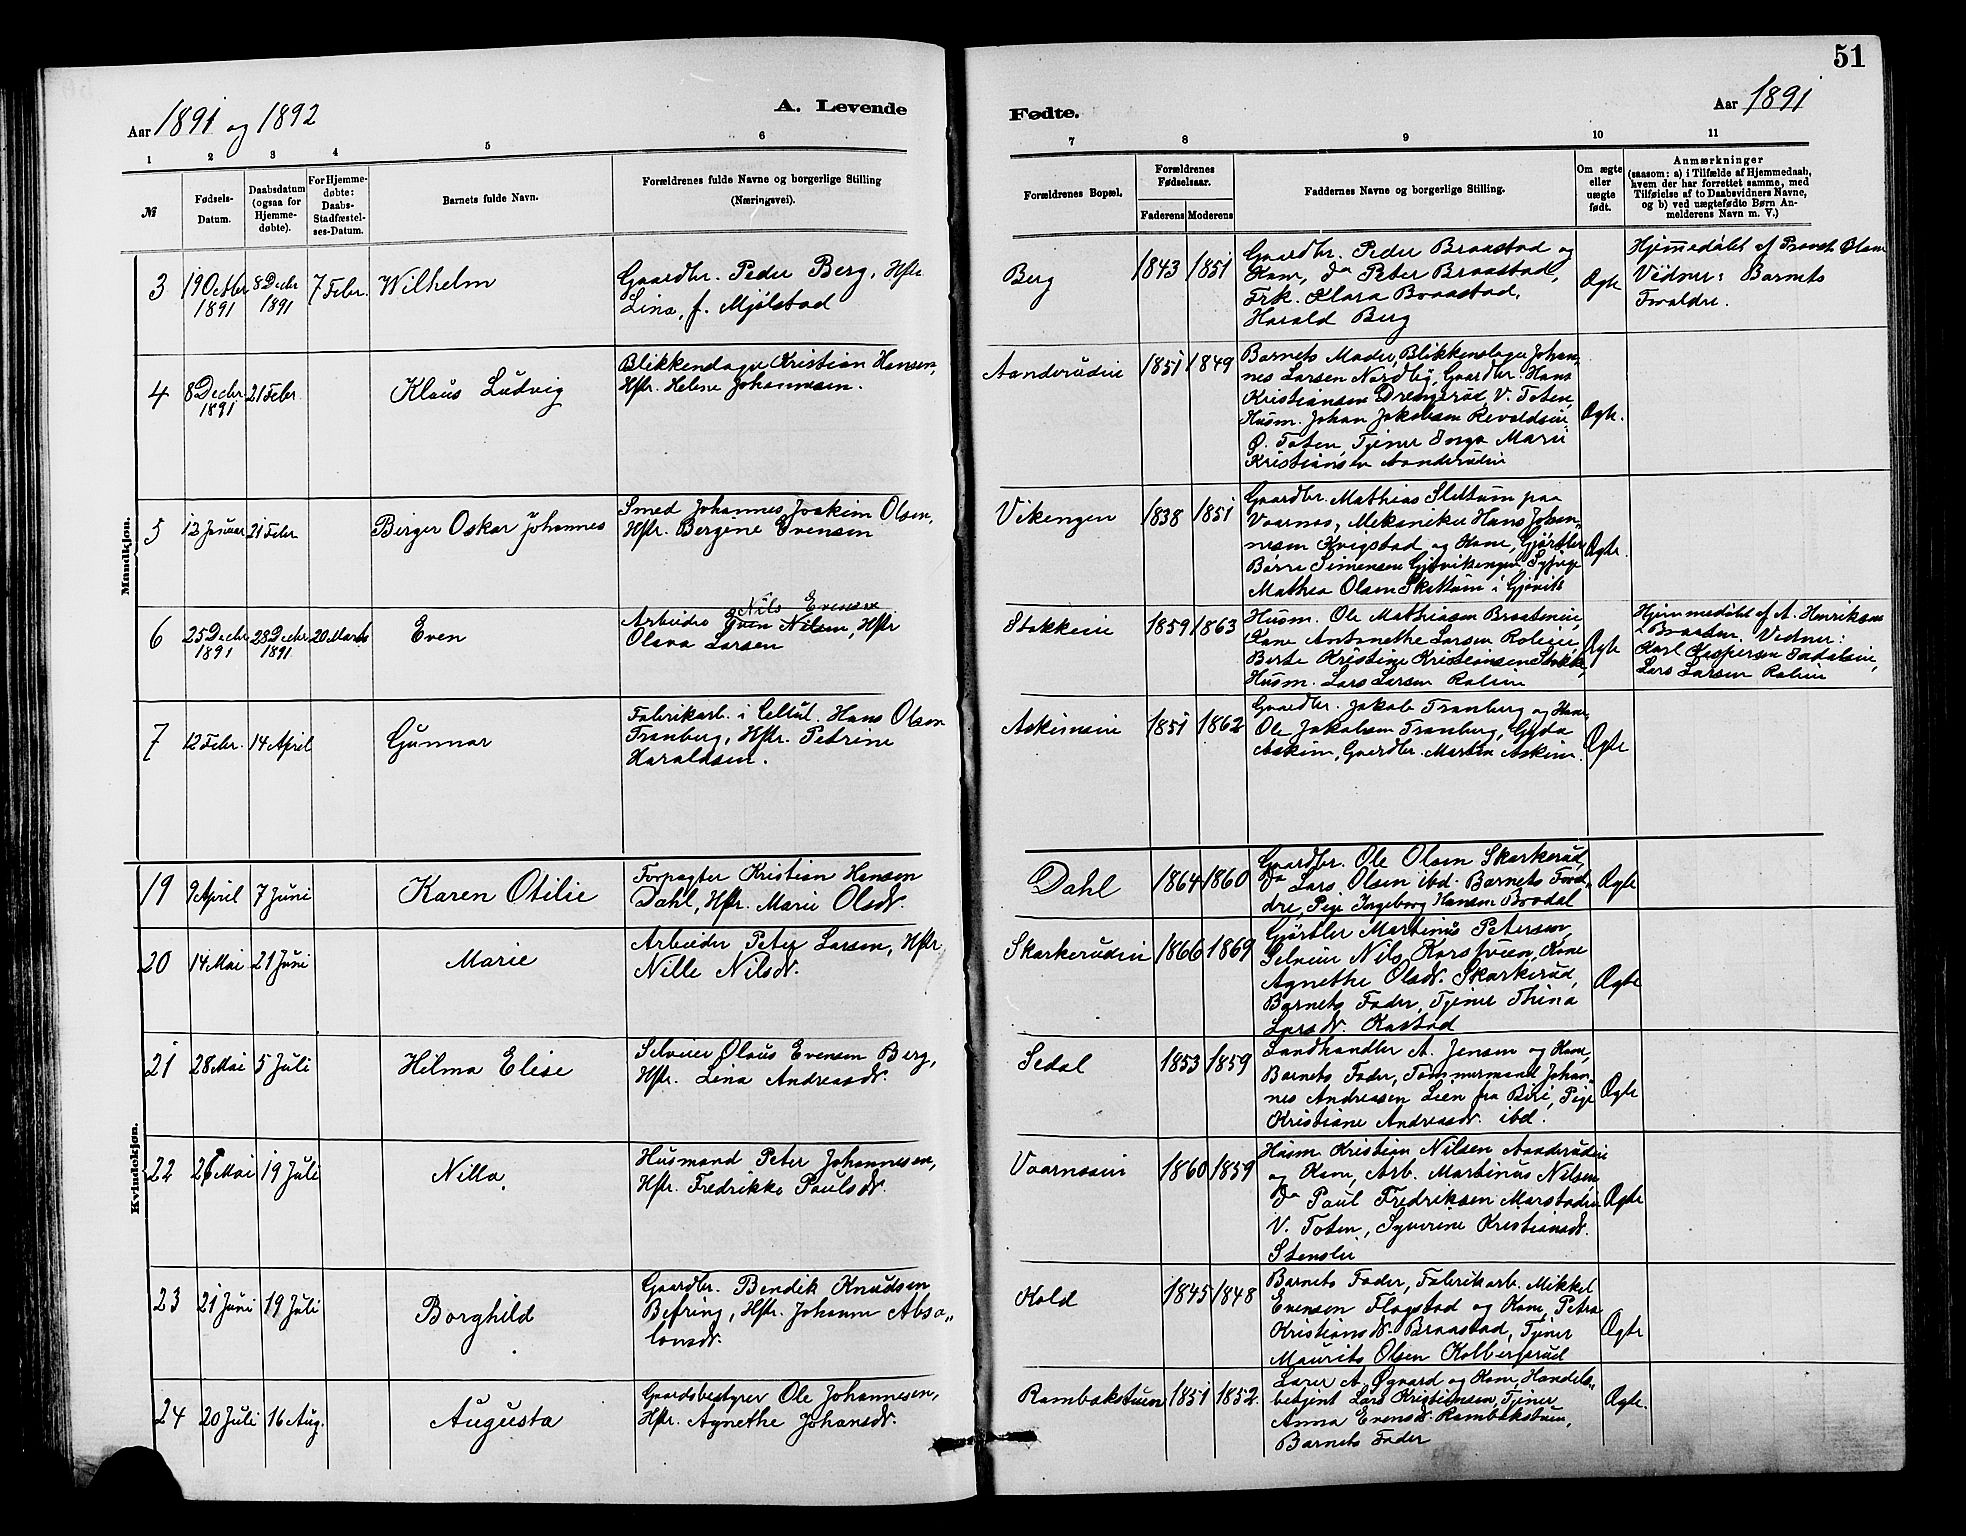 51
Aar 1891 og 1892
A. Levende
Fødte.
Aar 1891
1 2 3 4 5 6 7 8 9 10 11
№
Fødsels-Datum.
Daabsdatum (ogsaa for Hjemme-døbte).
For Hjemme-døbte: Daabs-Stadfæstel-ses-Datum.
Barnets fulde Navn.
Forældrenes fulde Navne og borgerlige Stilling (Næringsvei).
Forældrenes Bopæl.
Forældrenes Fødselsaar.
Faderens Moderens
Faddernes Navne og borgerlige Stilling.
Om ægte eller uægte født.
Anmærkninger
(saasom: a) i Tilfælde af Hjemmedaab, hvem der har forrettet samme, med Tilføielse af to Daabsvidners Navne, og b) ved uægtefødte Børn An-melderens Navn m. V.)
Mandkjøn.
3 19 Octbr 1891 8 Decbr 1891 7 Febr. Wilhelm
Gaardbr. Peder Berg, Hstr
Lina, f. Mjølstad
Berg 1843 1851
Gaardbr. Peder Braastad og
Kone, Do Peter Braastad,
Frk. Klara Braastad,
Harald Berg
Ægte
Hjemmedøbt af Provst
Vidner: Barnets
Foraldre.
4 8 Decbr 1891 21 Febr Klaus Ludvig
Blikkenslager Kristian Hansen,
Hstr. Helene Johannesen.
Aanderudeie 1851 1849
Barnets Moder, Blikkenslager Johan-
nes Larsen Nordby, Gaardbr. Hans
Kristiansen Drengsrud, V. Toten,
Husm. Johan Jakobsen Revoldseie
Ø. Toten, Tjener Inga Marie
Kristiansen Aanderudeie
Ægte.
5 12 Januar 21 Febr Birger Oskar Johannes
Smed Johannes Joakim Olsen,
Hstr. Bergine Evensen
Vikengen 1838 1851
Gaardbr. Mathias Slettum paa
Vaarnas, Mekaniker Hans Johan-
nesen Kvigstad og Kone, Gjørtler
Børre Simensen Gjøvikengen, Sypige
Mathea Olsen Slettum i Gjøvik
Ægte.
6 25 Decbr 1891 28 Decbr 1891 20 Marts Even
Nils Evensen
Arbeider Even Nilsen, Hstr
Olava Larsen
Stokkeie 1859 1863
Husm. Ole Mathiasen Braateneie,
Kone Antonethe Larsen Roleie,
Berte Kristine Kristiansen Stokke,
Husm. Lars Larsen Roleie
Ægte
Hjemmedøbt af A. Henriksen
Braaden. Vidner:
Karl Kaspersen
Lars Larsen Roleie
7 12 Febr. 14 April Gunnar
Fabrikarb. i Cellul. Hans Olsen
Tranberg, Hstr. Petrine
Haraldsen.
Askimeie 1851 1862
Gaardbr. Jakob Tranberg og Kone,
Ole Jakobsen Tranberg, Gyda
Askim, Gaardbr. Martin Askim.
Ægte
Kvindekjøn.
19 9 April 7 Juni Karen Otilie
Forpagter Kristian Hansen
Dahl, Hstr. Marie Olsdr.
Dahl 1864 1860
Gaardbr. Ole Olsen Skarkerud,
Do Lars Olsen ibd. Barnets Foræl-
dre, Pige Ingeborg Hansen Brodal
Ægte
20 14 Mai 21 Juni Marie
Arbeider Peter Larsen, Hstr
Nille Nilsdr.
Skarkerudeie 1866 1869
Gjørtler Martinus Petersen,
Selveier Nils Korsveien, Kone
Agnethe Olsdr. Skarkerud,
Barnets Fader, Tjener Thina
Larsdr. Kastad
Ægte
21 28 Mai 5 Juli Hilma Elise
Selveier Olaus Evensen Berg,
Hstr. Lina Andreasdr.
Sedal 1853 1859
Landhandler A. Jensen og Kone,
Barnets Fader, Tømmermand Johan-
nes Andreasen Lien fra Biri, Pige
Kristiane Andreasdr. ibd.
Ægte
22 26 Mai 19 Juli Nilla,
Husmand Peter Johannesen,
Hstr. Fredrikke Paulsdr.
Vaarnaseie 1860 1859
Husm Kristian Nilsen Aanderudeie
og Kone, Arb. Martinus Nilsen,
Do Paul Fredriksen Marstadeie
V. Toten, Syverine Kristiansdr.
Stensler
Ægte
23 21 Juni 19 Juli Borghild
Gaardbr. Bendik Knudsen
Befring, Hstr. Johanne Absa-
lonsdr.
Kold 1845 1848
Barnets Fader, Fabrikarb. Mikkel
Evensen Flagstad og Kone, Petra
Kristiansdr. Braastad, Tjener
Maurits Olsen Kolbersrud
Ægte
24 20 Juli 16 Aug. Augusta
Gaardsbestyrer Ole Johannesen,
Hstr. Agnethe Johansdr.
Rambækstuen 1851 1852.
Lærer A. Øgaard og Kone, Handels-
betjent Lars Kristiansen, Tjener
Anna Evensdr. Rambækstuen,
Barnets Fader
Ægte.